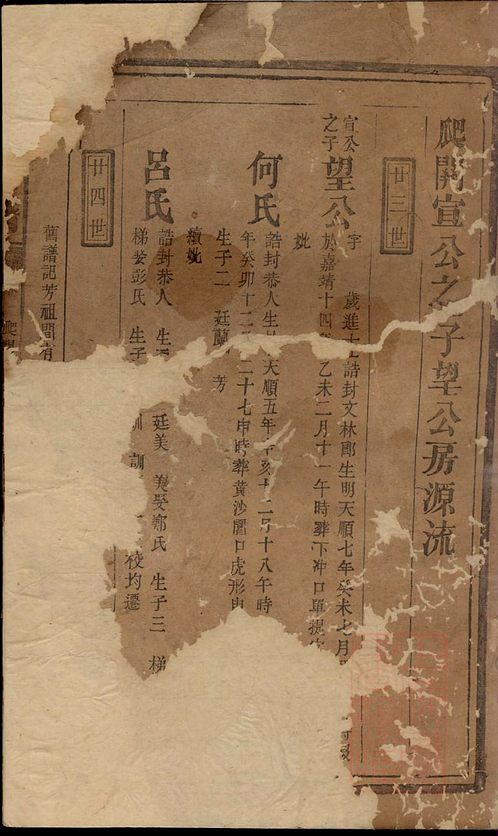 爬開宣公之子望公房源流
廿三世
宣公之子
望公
字 歲進士誥封文林郎生明天順七年癸未七月
於嘉靖十四 乙未二月十一午時葬下冲口單提
妣
何氏
誥封恭人生 天順五年 亥十二月十八午時
年癸卯十二 二十七申時葬黃沙圍口虎形
生子二 廷蘭 芳
續妣
呂氏
誥封恭人 生 廷美 美娶鄭氏 生子三 梯
梯娶彭氏 生子 訓 校均遷
廿四世
舊譜記芳祖間有